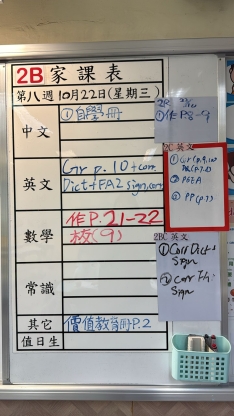 2B 家課表
第八週10月22日(星期三)
中文
①自學冊
英文
Gr p.10+corr
Dict+FA2 sign, corr
數學
作P.21-22
校(9)
常識
其它
價值教育冊P.2
值日生
①作P8-9
2C 英文
② PGEA
③ PP(p.7)
2BC 英文
①Corr Dict 5
sign
②Corr
Sign